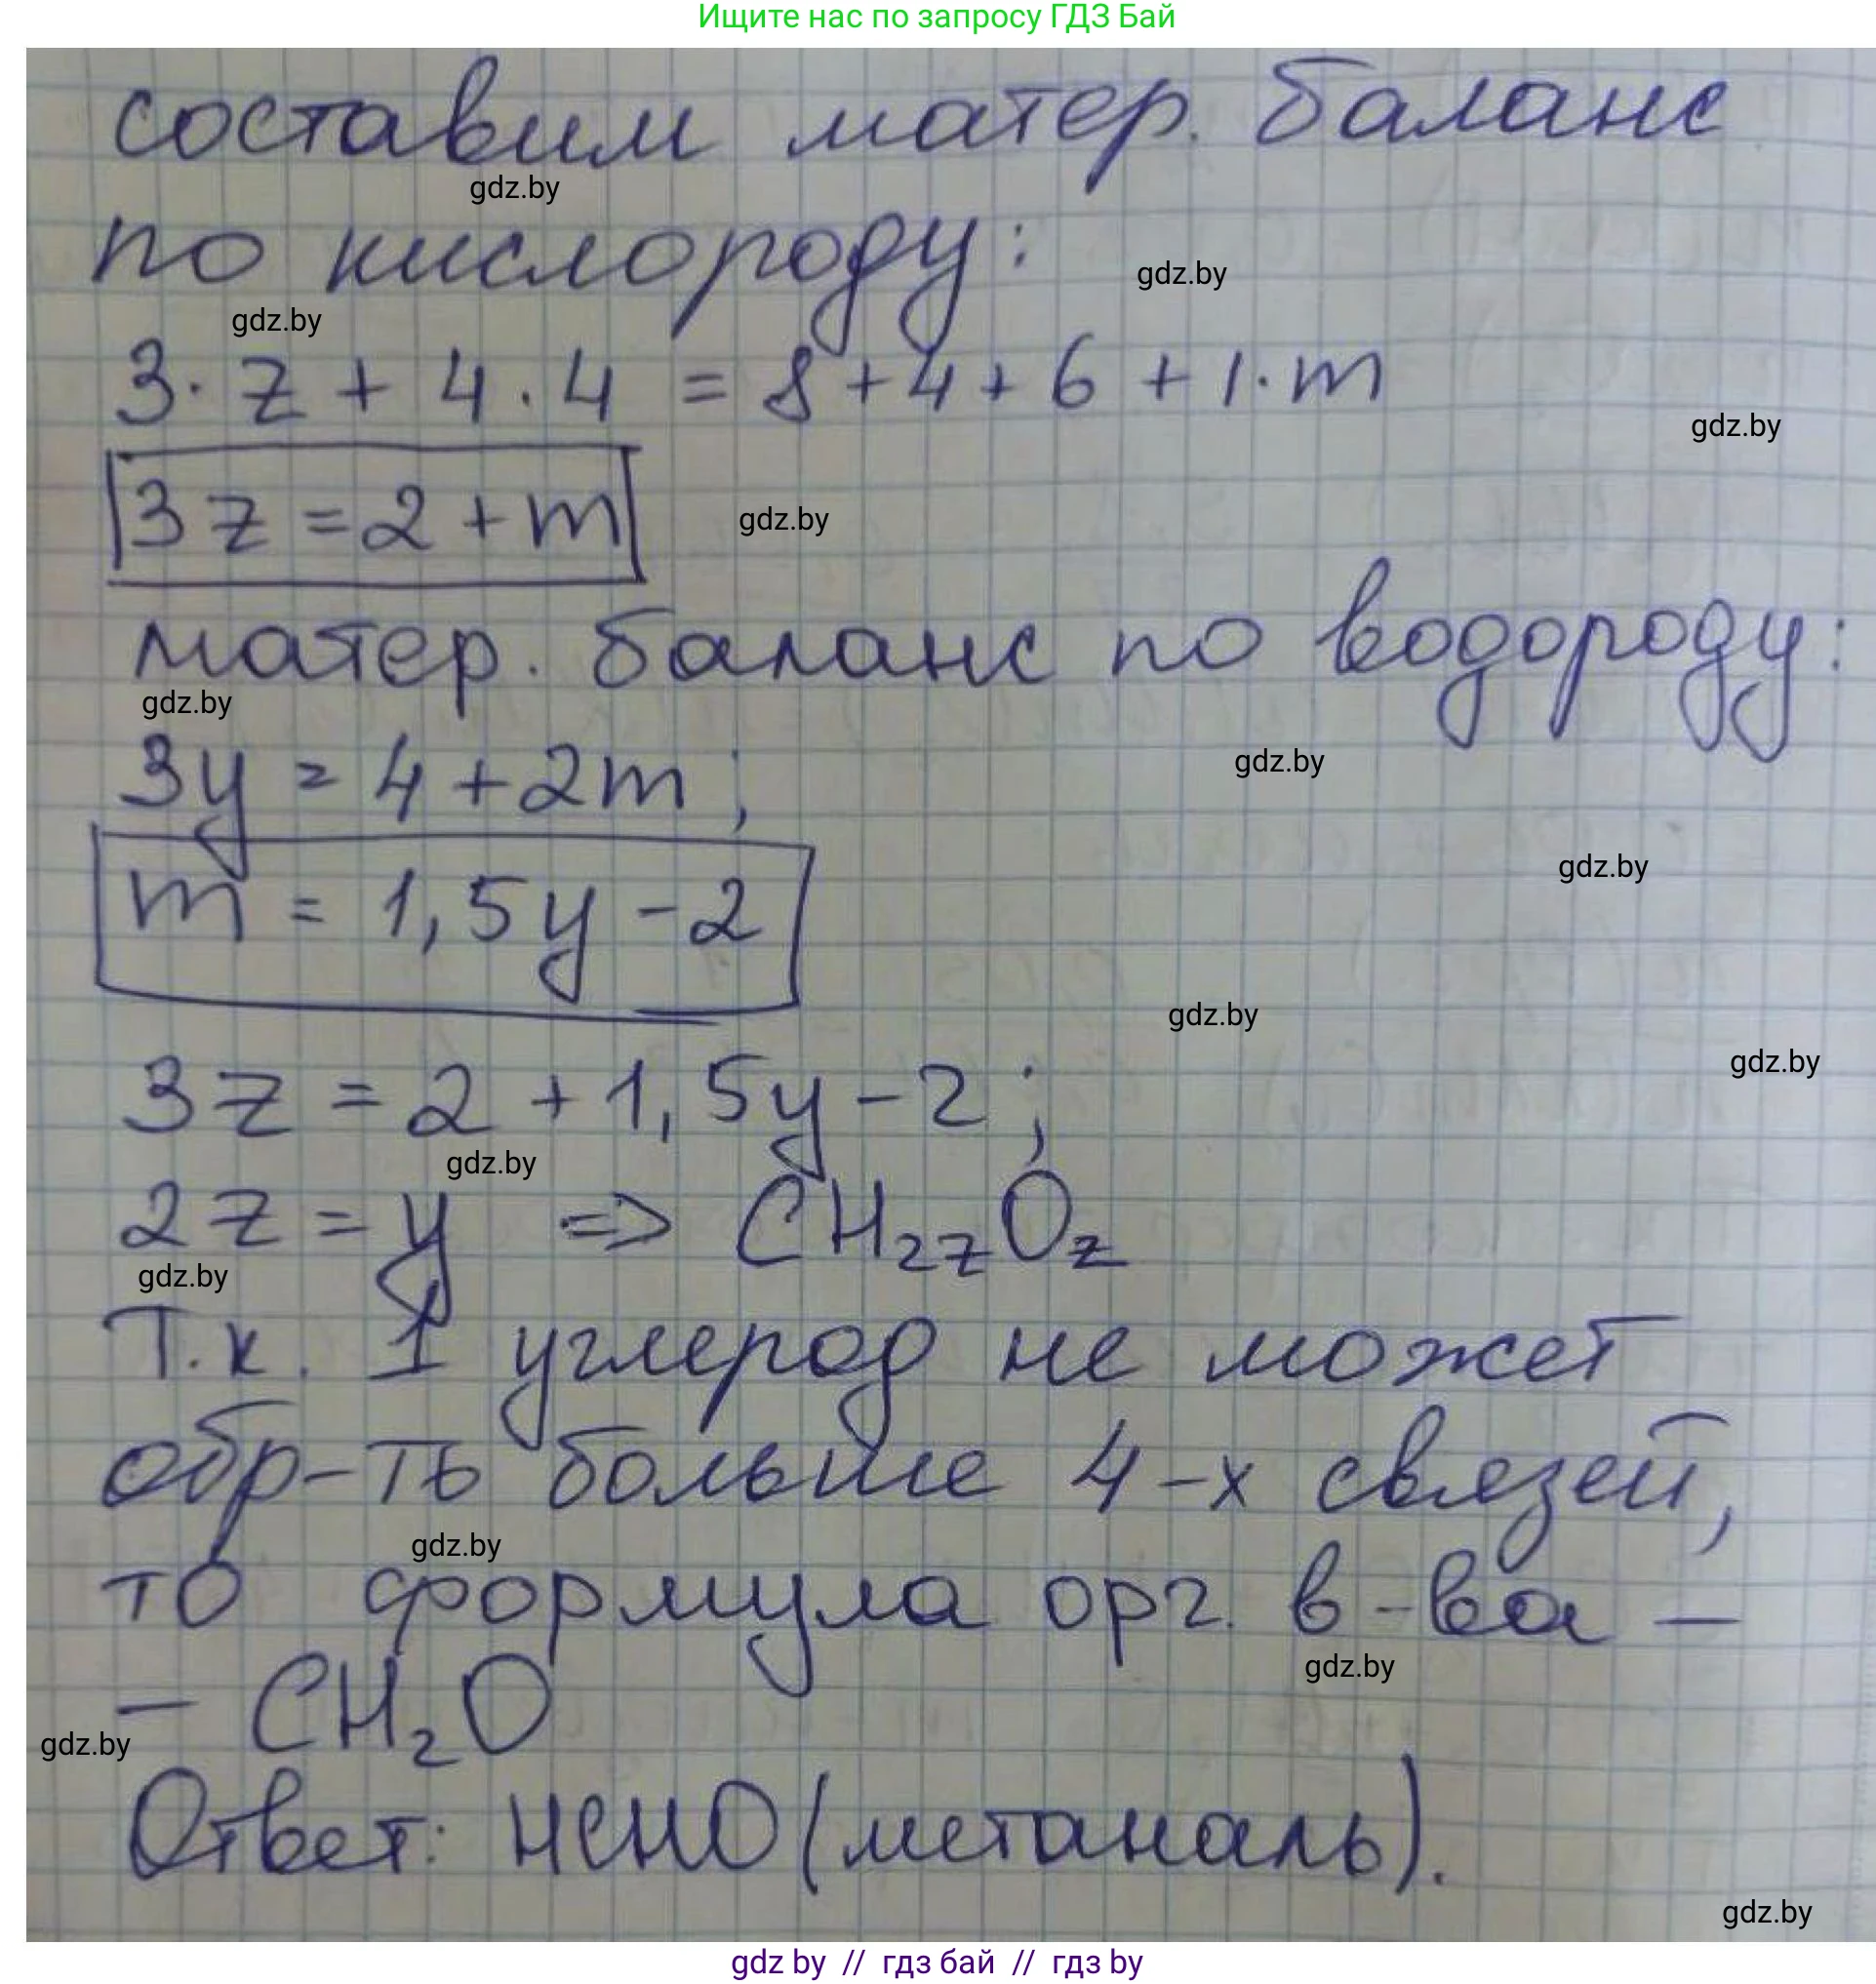 Ищите нас по запросу ГДЗ Бай
составим матер. баланс
gdz.by
по кислороду:
gdz.by
gdz.by
3·z + 4·4 = 8+4+6+1·m
gdz.by
3z = 2+m
gdz.by
матер. баланс по водороду:
gdz.by
3y = 4+2m;
gdz.by
gdz.by
m = 1,5y-2
gdz.by
gdz.by
3z = 2+1,5y-2;
gdz.by
2z = y => CH₂zOz
gdz.by
Т.к. 1 углерод не может
обр-ть больше 4-х связей,
gdz.by
то формула орг. в-ва –
gdz.by
– CH₂O
gdz.by
Ответ: НСНО (метаналь).
gdz.by
gdz by // гдз бай // гдз by